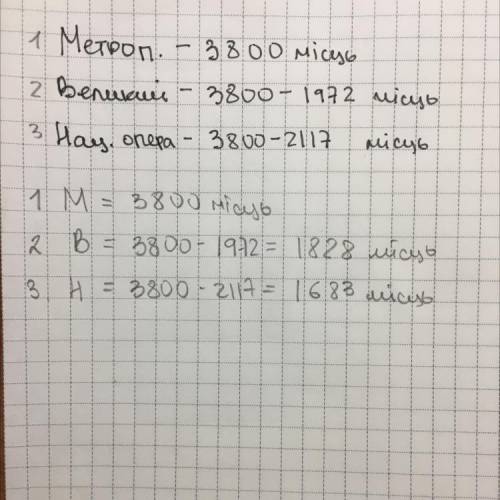 1 Метроп. - 3800 місць
2 Великий - 3800 - 1972 місць
3 Нац. опера - 3800 - 2117 місць
1 М = 3800 місць
2 В = 3800 - 1972 = 1828 місць
3 Н = 3800 - 2117 = 1683 місць